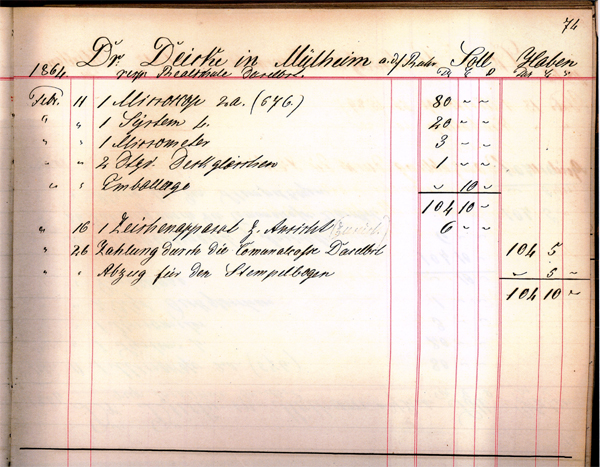 74
Dr. Deicke in Mülheim a. d. Ruhr Soll Haben
1864. resp. Realschule daselbst.
Febr. 11 1 Microskop 2a. (676.) 80 " "
" " 1 System b. 20 " "
" " 1 Micrometer 3 " "
" " 2 Dtzd. Deckgläschen 1 " "
" " Emballage " 10 "
104 10 "
" 16 1 Zeichenapparat z. Ansicht 6 " "
" 26 Zahlung durch die Communalcasse Daselbst 104 5
" " Abzug für den Stempelbogen " 5 "
104 10 "